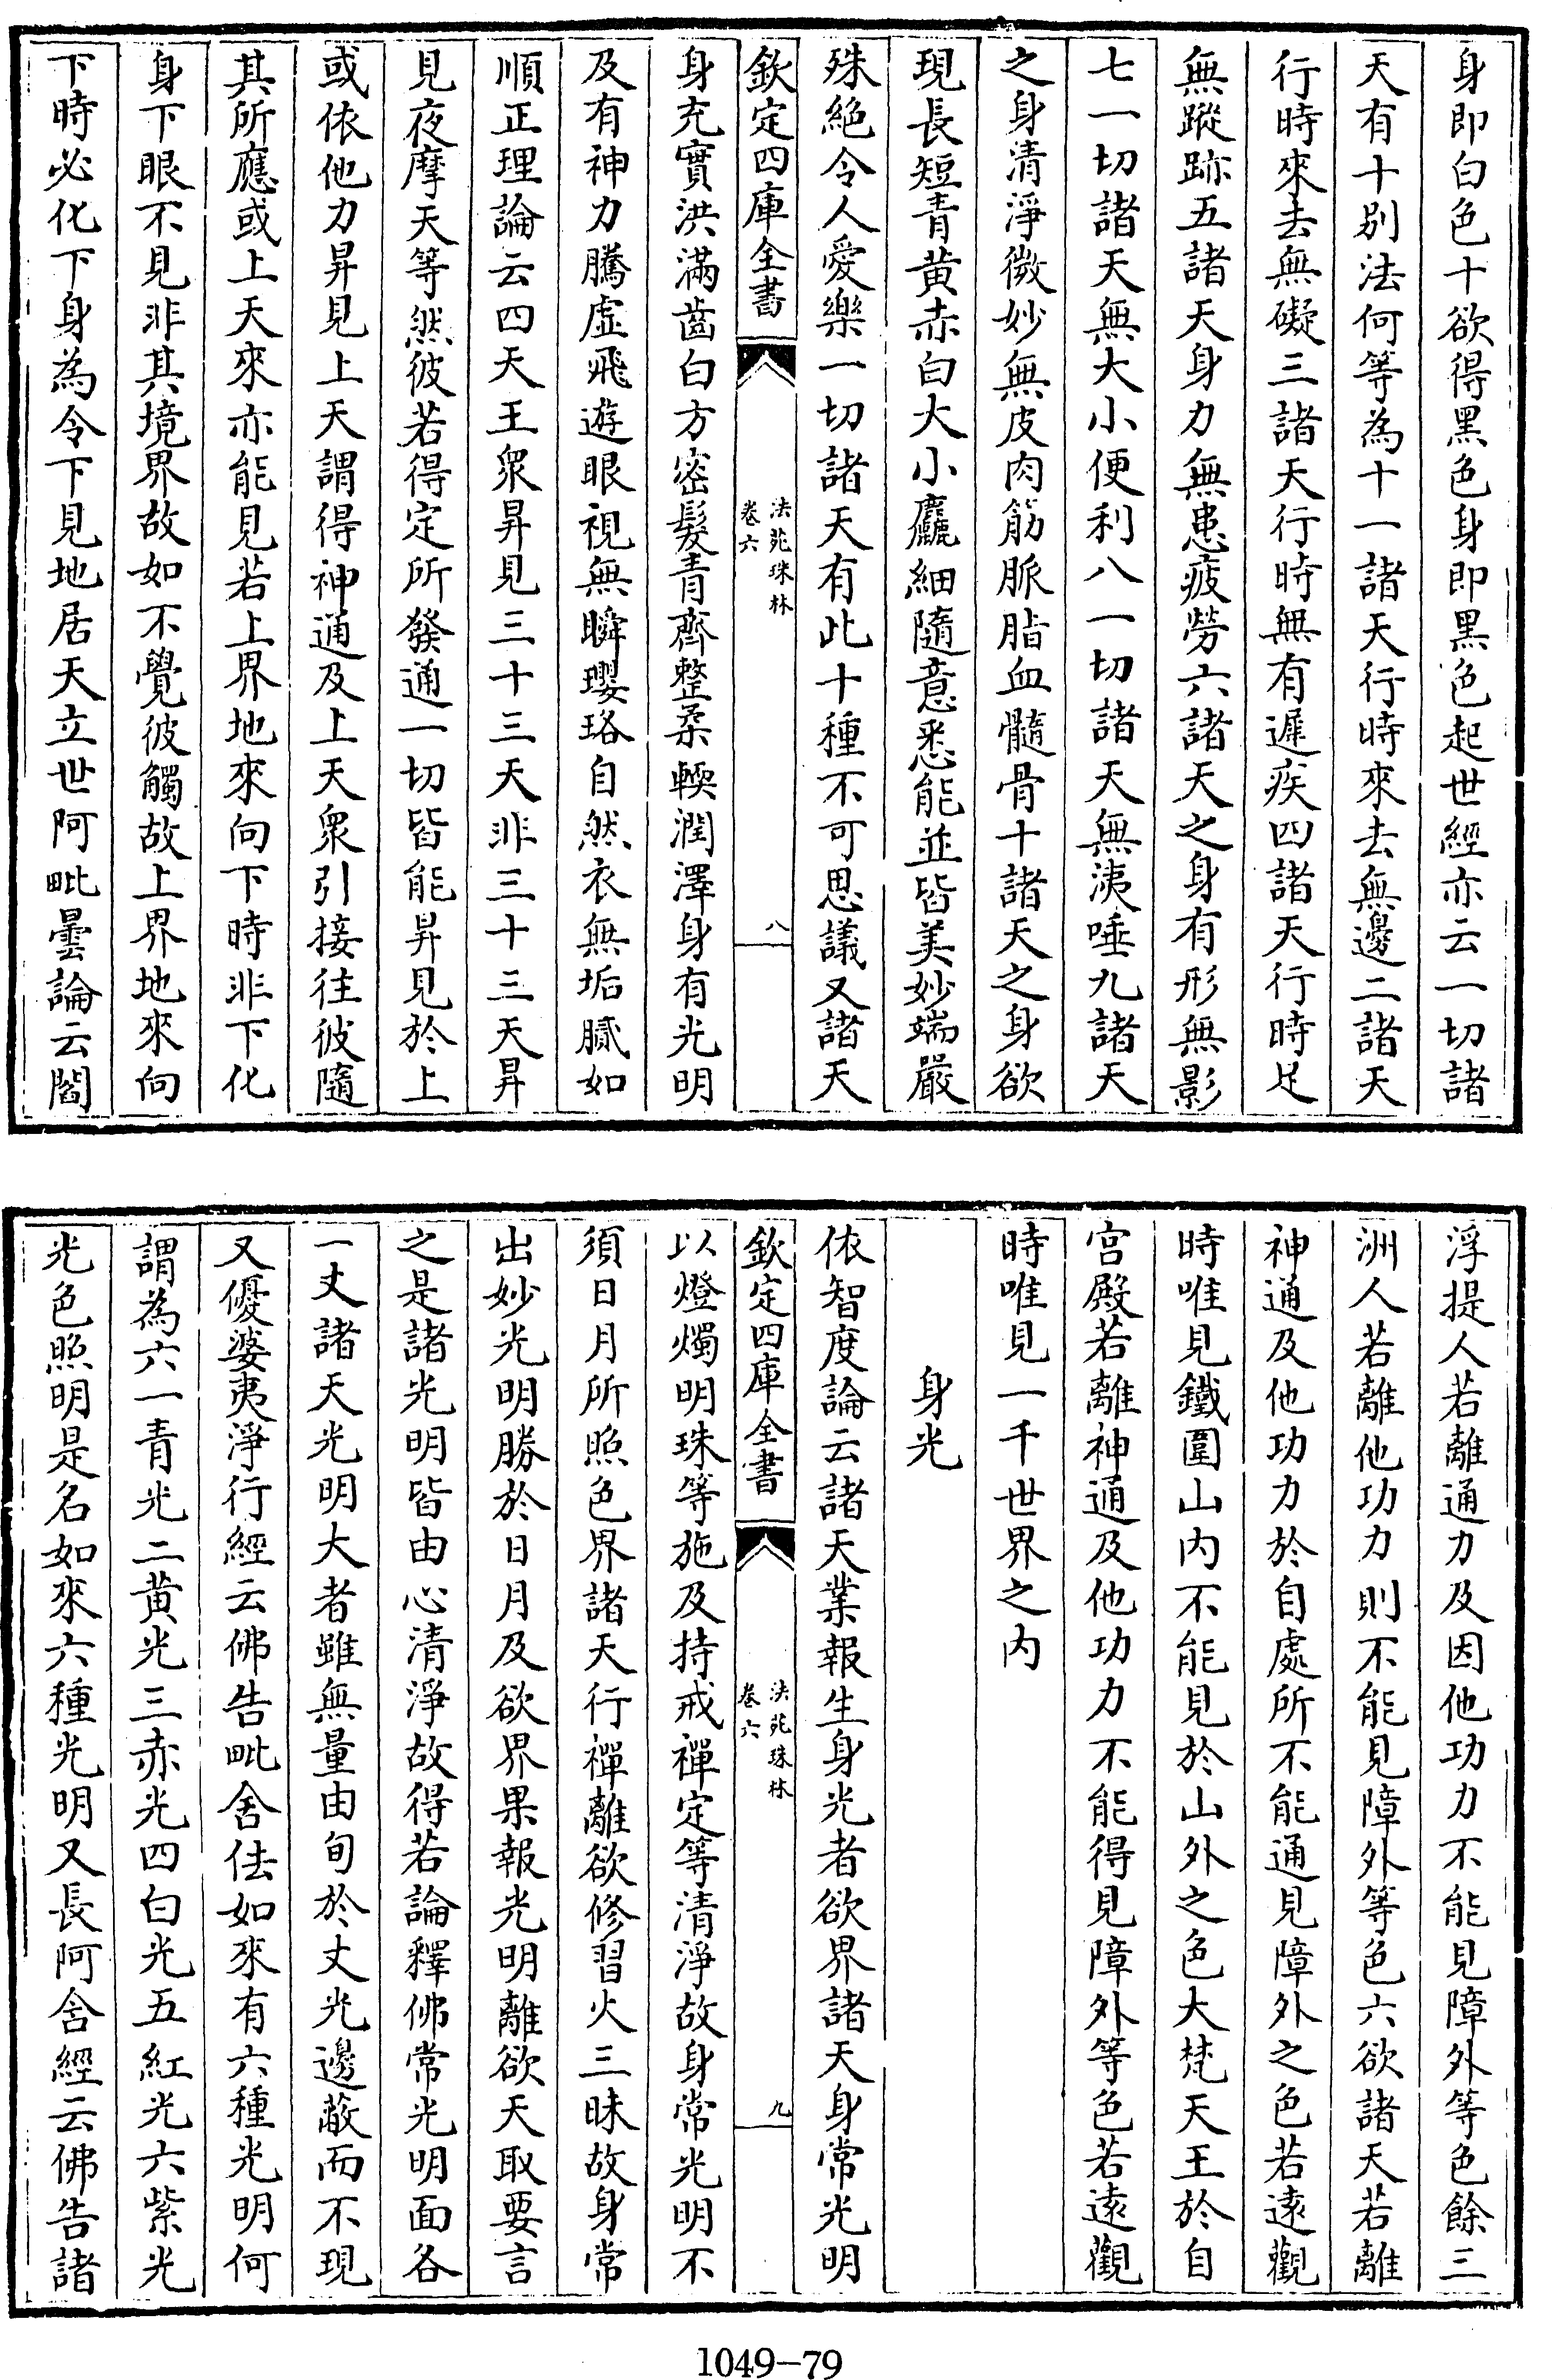 身即白色十欲得黑色身即黑色起世經亦云一切諸
天有十別法何等為十一諸天行時來去無邊二諸天
行時來去無礙三諸天行時無有遲疾四諸天行時足
無蹤跡五諸天身力無患疲勞六諸天之身有形無影
七一切諸天無大小便利八一切諸天無洟唾九諸天
之身清淨微妙無皮肉筋脈脂血髓骨十諸天之身欲
現長短青黃赤白大小麤細隨意悉能並皆美妙端嚴
殊絕令人愛樂一切諸天有此十種不可思議又諸天
欽定四庫全書
法苑珠林
卷六
八
身充實洪滿齒白方密髮青齊整柔輭潤澤身有光明
及有神力騰虛飛遊眼視無瞬瓔珞自然衣無垢膩如
順正理論云四天王衆昇見三十三天非三十三天昇
見夜摩天等然彼若得定所發通一切皆能昇見於上
或依他力昇見上天謂得神通及上天衆引接往彼隨
其所應或上天來亦能見若上界地來向下時非下化
身下眼不見非其境界故如不覺彼觸故上界地來向
下時必化下身為令下見地居天立世阿毗曇論云閻
浮提人若離通力及因他功力不能見障外等色餘三
洲人若離他功力則不能見障外等色六欲諸天若離
神通及他功力於自處所不能通見障外之色若遠觀
時唯見鐵圍山內不能見於山外之色大梵天王於自
宮殿若離神通及他功力不能得見障外等色若遠觀
時唯見一千世界之內
身光
依智度論云諸天業報生身光者欲界諸天身常光明
欽定四庫全書
法苑珠林
卷六
九
以燈燭明珠等施及持戒禪定等清淨故身常光明不
須日月所照色界諸天行禪離欲修習火三昧故身常
出妙光明勝於日月及欲界果報光明離欲天取要言
之是諸光明皆由心清淨故得若論釋佛常光明面各
一丈諸天光明大者雖無量由旬於丈光邊蔽而不現
又優婆夷淨行經云佛告毗舍佉如來有六種光明何
謂為六一青光二黃光三赤光四白光五紅光六紫光
光色照明是名如來六種光明又長阿含經云佛告諸
1049-79